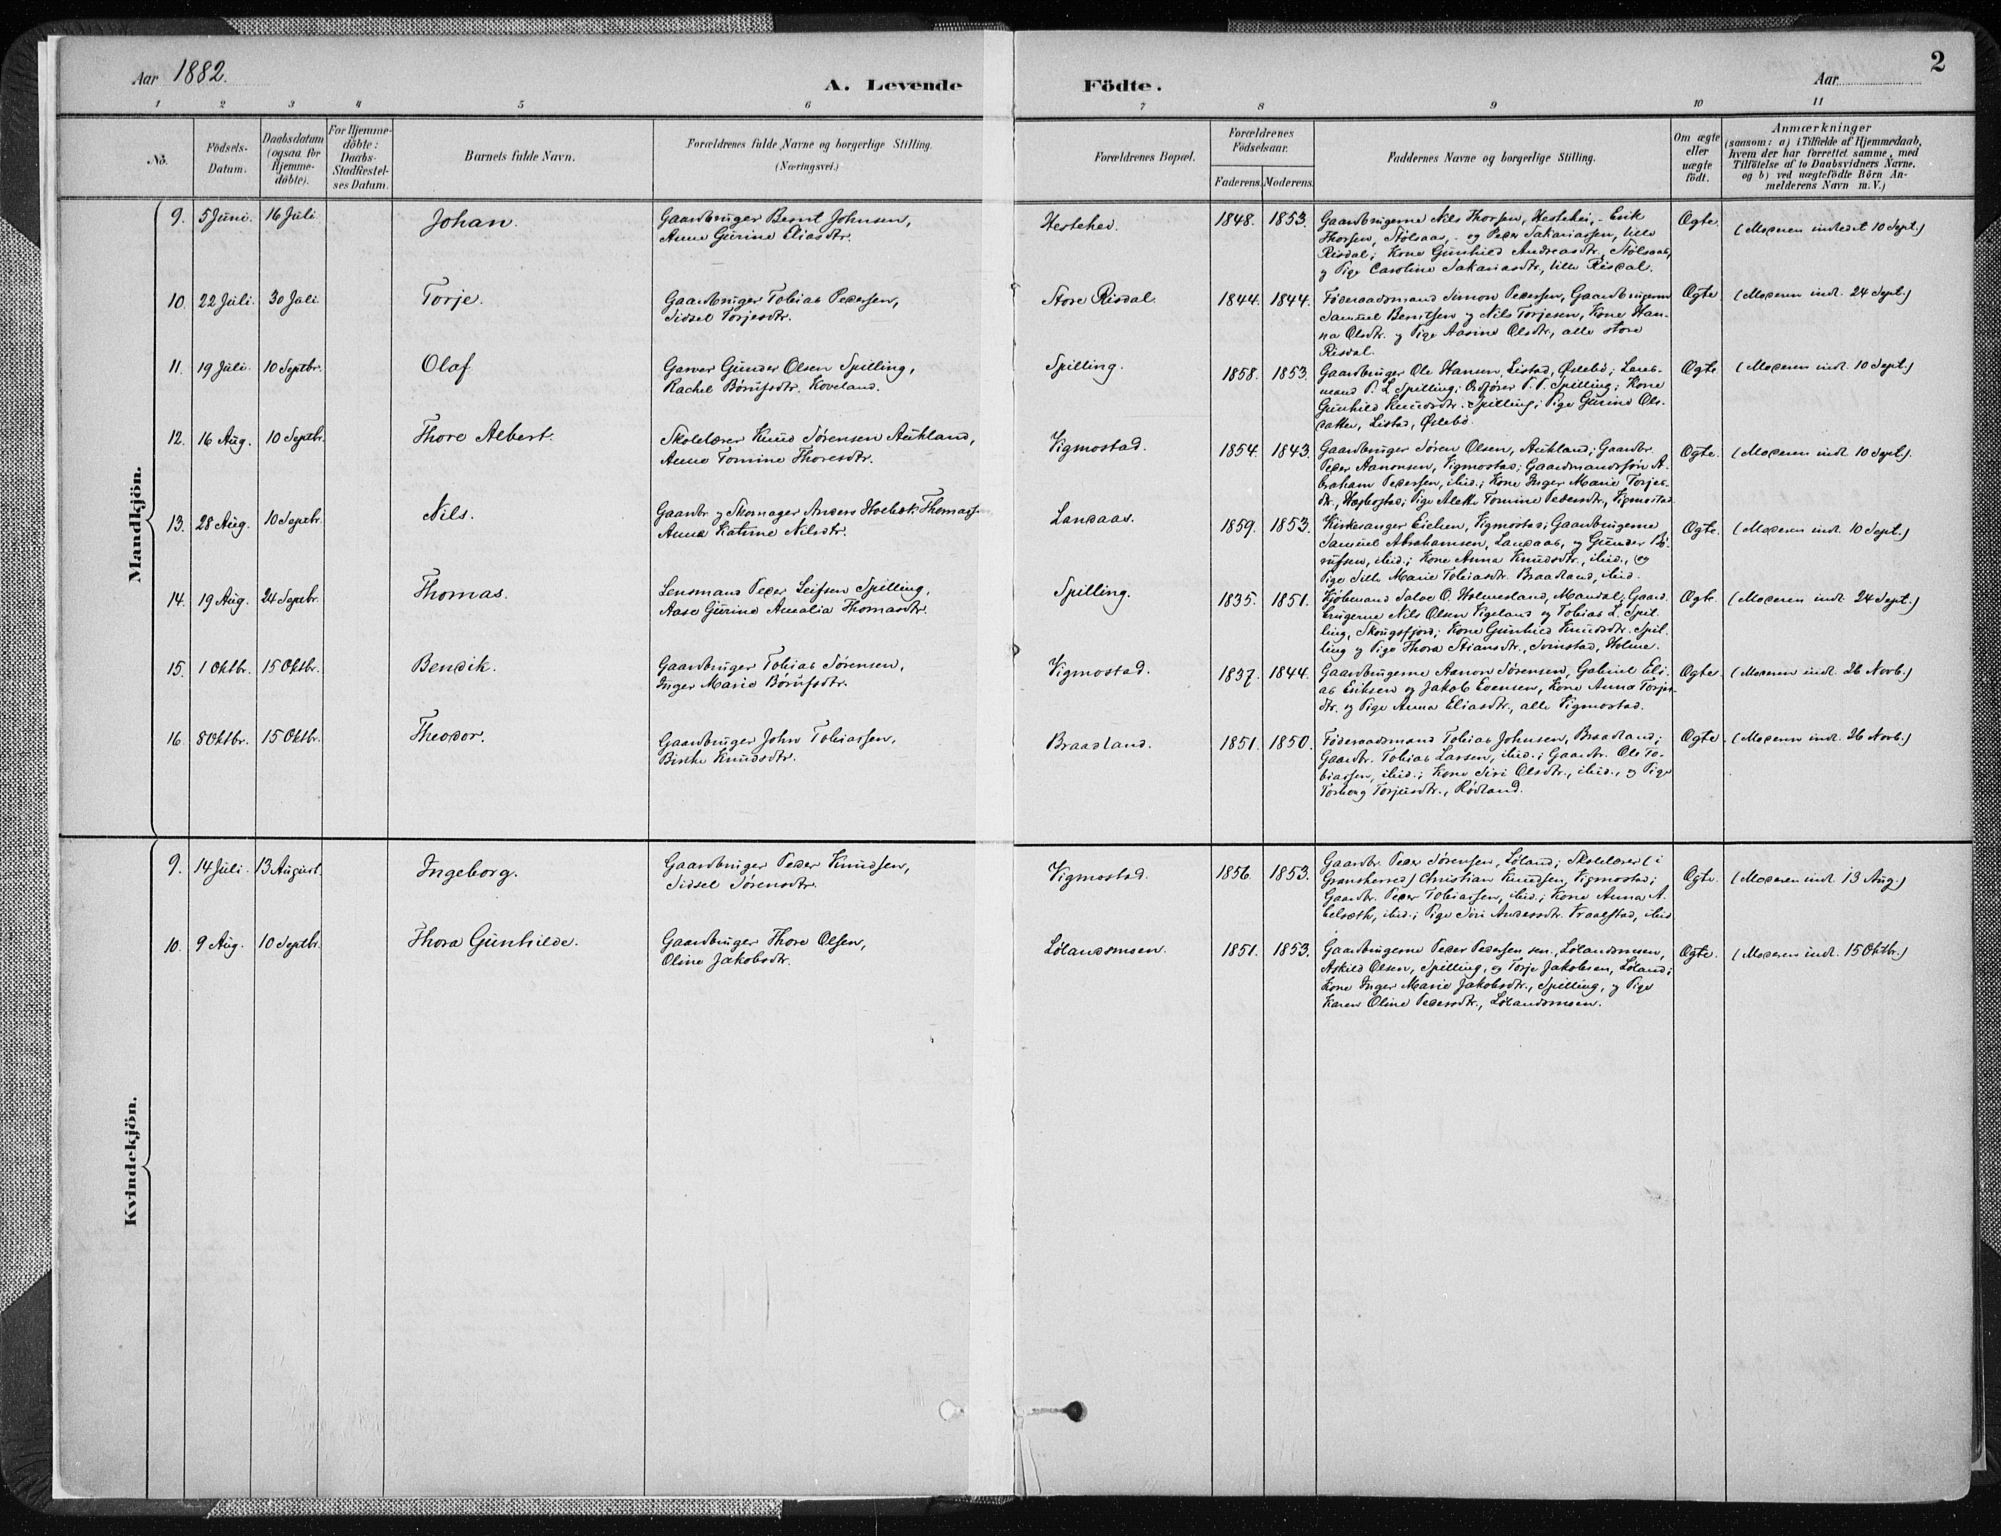 Aar 1882.
A. Levende Födte.
Aar
2
1 2 3 4 5 6 7 8 9 10 11
No.
Födsels-Datum.
Daabsdatum (ogsaa for Hjemme-döbte).
For Hjemme-döbte: Daabs-Stadfæstel-ses Datum.
Barnets fulde Navn.
Forældrenes fulde Navne og borgerlige Stilling.
(Næringsvei.)
Forældrenes Bopæl.
Forældrenes Födselsaar.
Faderens. Moderens.
Faddernes Navne og borgerlige Stilling.
Om ægte eller uægte födt.
Anmærkninger
(saasom: a) i Tilfælde af Hjemmedaab,
hvem der har forrettet samme, med
Tilföielse af to Daabsvidners Navne.
og b) ved uægtefödte Börn An-
melderens Navn m. V.)
Mandkjön.
9. 5 Juni. 16 Juli Johan. Gaardbruger Bernt Johnsen, Hestehei. 1848. 1853. Gaardbrugerne Nils Thorsen, Hestehei, - Erik Ægte. (Moderen indledet 10 Sept.)
Anne Gurine Eliasdtr. Thorsen, Stølsaas, - og Peder Sakariassen, lille
Risdal; Kone Gunhild Andreasdtr. Stølsaas,
og Pige Caroline Sakariasdtr, lille Risdal.
10. 22 Juli. 30 Juli Torje. Gaardbruger Tobias Pedersen, Store Risdal. 1844. 1844. Føderaadsmand Simon Pedersen, Gaardbrugerne Ægte (Moderen indl. 24 Sept.)
Sidsel Torjesdtr. Samuel Berntsen og Nils Torjesen, Kone Han-
na Olsdtr. og Pige Aasine Olsdtr, alle store
Risdal.
11. 19 Juli. 10 Septbr. Olaf Garver Gunder Olsen Spilling, Spilling. 1858. 1853. Gaardbruger Ole Hansen, Listad, Øslebø; Lens- Ægte (Moderen indl. 10 Sept.)
Rachel Børufsdtr. Koveland. mand P. L. Spilling; Ordfører T. T. Spilling; Kone
Gunhild Knudsdtr. Spilling; Pige Gurine Ols-
datter, Listad, Øslebø.
12. 16 Aug. 10 Septbr. Thore Albert. Skolelærer Knud Sørensen Aukland, Vigmostad. 1854. 1843. Gaardbruger Sören Olsen, Aukland; Gaardbr. Ægte. (Moderen indl. 10 Sept.)
Anne Tomine Thoresdtr. Peder Aanonsen, Vigmostad; Gaardmandssøn A-
braham Pedersen, ibid.; Kone Inger Marie Torjes-
dtr., Hægbostad; Pige Alette Tomine Pedersdtr., Vigmostad.
13. 28 Aug. 10 Septbr. Nils. Gaardbr. og Skomager Anders Holbek Thomassen Landaas. 1859. 1853. Kirkesanger Eieken, Vigmostad; Gaardbrugerne Ægte. (Moderen indl. 10 Sept.)
Anna Katrine Nilsdtr. Samuel Abrahamsen, Landaas, og Gunder Bø-
rufsen, ibid.; Kone Anna Knudsdtr., ibid., og
Pige Sille Marie Tobiasdtr. Braadland, ibid.
14. 19 Aug. 24 Septbr. Thomas. Lensmand Peder Leifsen Spilling, Spilling. 1835. 1851. Kjøbmand Salve O. Holmesland, Mandal; Gaard- Ægte. (Moderen indl. 24 Sept.)
Aase Gurine Amalia Thomasdtr. brugerne Nils Olsen Vigeland og Tobias L. Spil-
ling, Skougsfjord; Kone Gunhild Knudsdtr. Spil-
ling og Pige Thora Stiansdtr., Svinstad, Holme.
15. 1 Oktbr. 15 Oktbr. Bendik. Gaardbruger Tobias Sørensen, Vigmostad. 1837. 1844. Gaardbrugerne Aanon Sørensen, Gabriel Eli- Ægte. (Moderen indl. 26 Novb.)
Inger Marie Børufsdtr. as Eriksen og Jakob Evensen, Kone Anna Torjes-
dtr. og Pige Anna Eliasdtr., alle Vigmostad.
16. 8 Oktbr. 15 Oktbr. Theodor. Gaardbruger John Tobiassen, Braadland. 1851. 1850. Føderaadsmand Tobias Johnsen, Braadland; Ægte. (Moderen indl. 26 Novb.)
Birthe Knudsdtr. Gaardbr. Tobias Larsen, ibid.; Gaardbr. Ole To-
biassen, ibid.; Kone Siri Olsdtr., ibid., og Pige
Torborg Torjusdtr., Rødland.
Kvindekjön.
9. 14 Juli. 13 August. Ingeborg. Gaardbruger Peder Knudsen, Vigmostad. 1856. 1853. Gaardbr. Peder Sørensen, Løland; Skolelærer (i Ægte. (Moderen indl. 13 Aug.)
Sidsel Sørensdtr. Gransherred) Christian Knudsen, Vigmostad;
Gaardbr. Peder Tobiassen, ibid.; Kone Anna A-
belseth, ibid.; Pige Siri Andersdtr. Vraalstad, ibid
10. 9 Aug. 10 Septbr. Thora Gunhilde. Gaardbruger Thore Olsen, Lølandsmoen. 1851. 1853. Gaardbrugerne Peder Pedersen sen., Lølandsmoen, Ægte. (Moderen indl. 15 Oktbr.)
Oline Jakobsdtr. Askild Olsen, Spilling, og Torje Jakobsen, Løland;
Kone Inger Marie Jakobsdtr., Spilling, og Pige
Karen Oline Pedersdtr., Lølandsmoen.